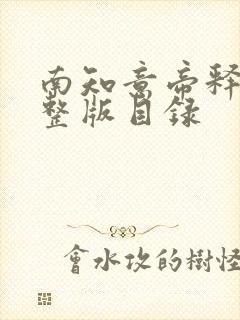 南知意帝释
整版目录
會水攻的樹怪